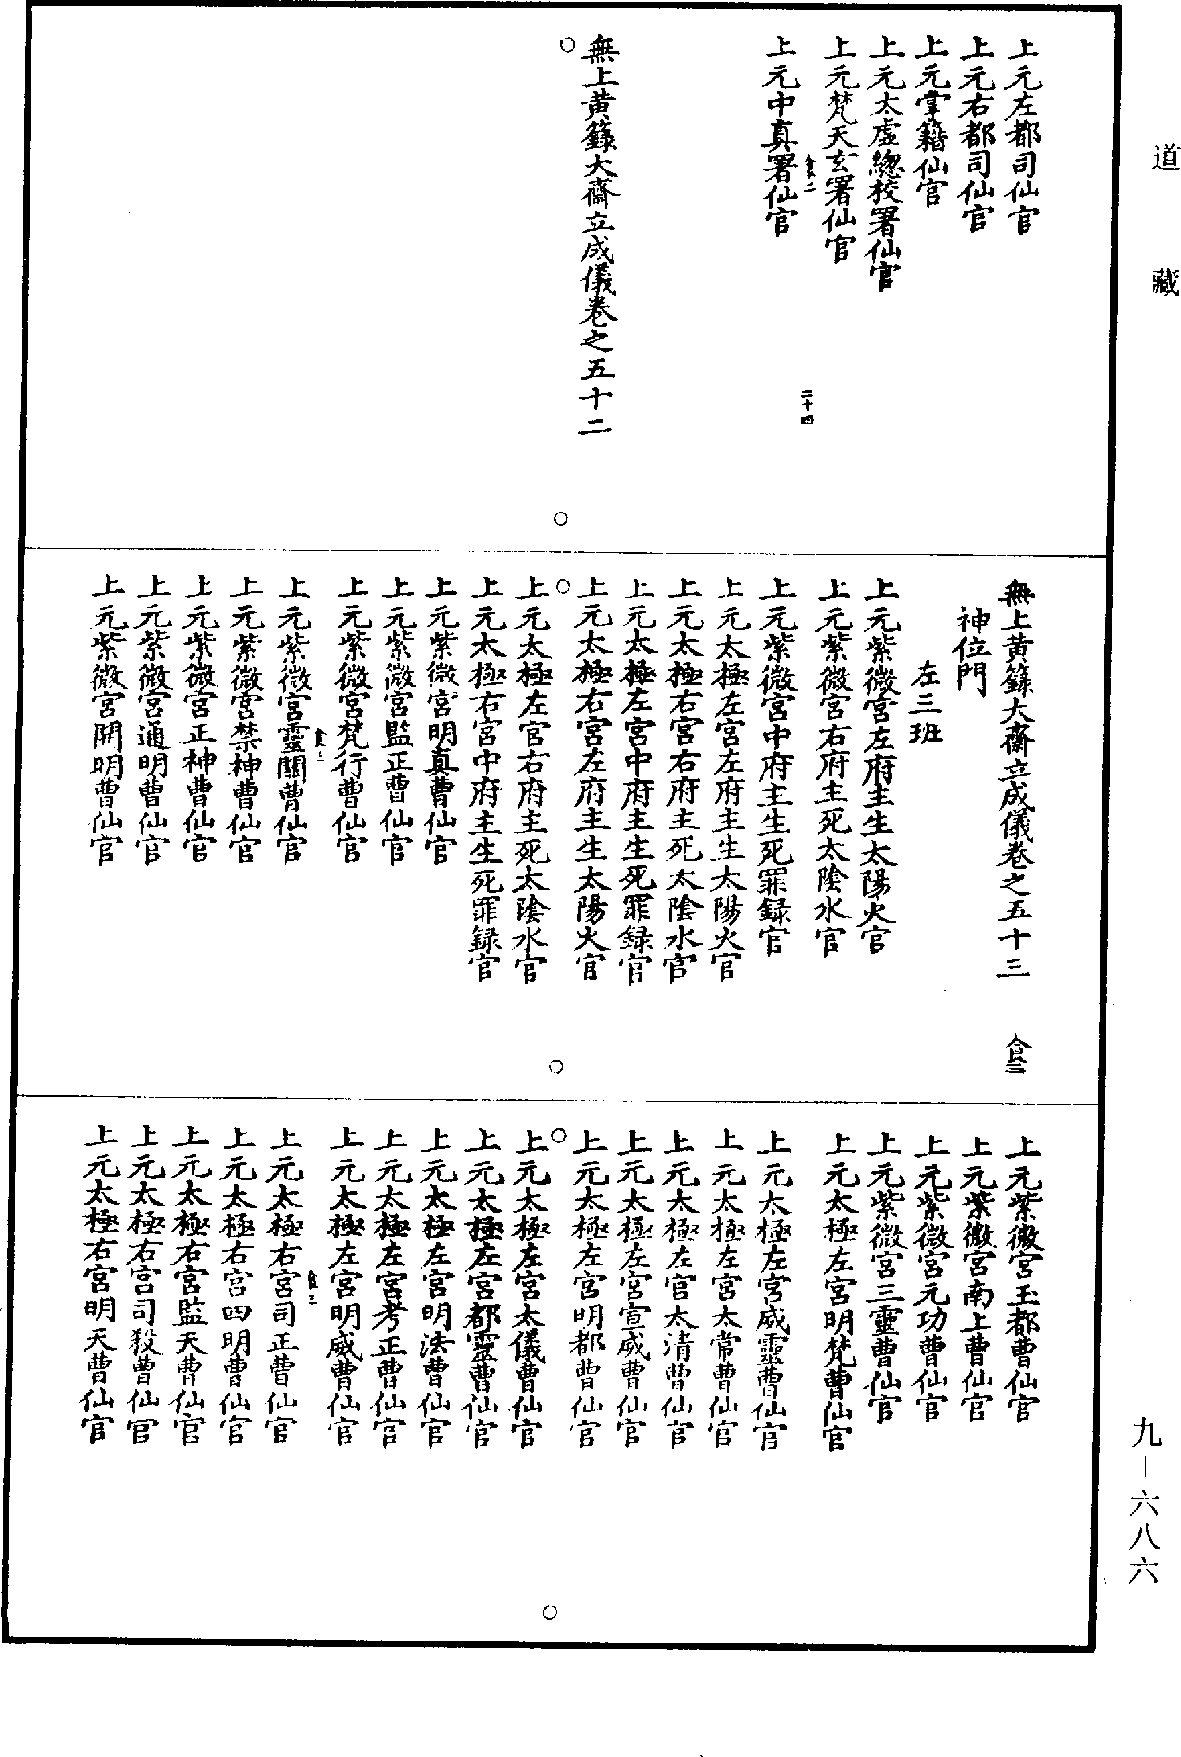 道藏
上元左都司仙官
上元右都司仙官
上元掌籍仙官
上元太虛總校署仙官
上元梵天玄署仙官
二十四
上元中真署仙官
無上黃籙大齋立成儀卷之五十二
無上黃籙大齋立成儀卷之五十三
神位門
左三班
上元紫微宮左府主生太陽火官
上元紫微宮右府主死太陰水官
上元紫微宮中府主生死罪録官
上元太極左宮左府主生太陽火官
上元太極右宮右府主死太陰水官
上元太極左宮中府主生死罪録官
上元太極右宮左府主生太陽火官
上元太極左官右府主死太陰水官
上元太極右宮中府主生死罪録官
上元紫微宮明真曹仙官
上元紫微宮監正曹仙官
上元紫微宮梵行曹仙官
上元紫微宮靈關曹仙官
上元紫微宮禁神曹仙官
上元紫微宮正神曹仙官
上元紫微宮通明曹仙官
上元紫微宮開明曹仙官
上元紫微宮玉都曹仙官
上元紫微宮南上曹仙官
上元紫微宮元功曹仙官
上元紫微宮三靈曹仙官
上元太極左宮明梵曹仙官
上元太極左宮威靈曹仙官
上元太極左宮太常曹仙官
上元太極左官太清曹仙官
上元太極左宮宣威曹仙官
上元太極左宮明都曹仙官
上元太極左宮太儀曹仙官
上元太極左宮都靈曹仙官
上元太極左宮明法曹仙官
上元太極左宮考正曹仙官
上元太極左宮明威曹仙官
上元太極右宮司正曹仙官
上元太極右宮四明曹仙官
上元太極右宮監天曹仙官
上元太極右宮司殺曹仙官
上元太極右宮明天曹仙官
九—六八六